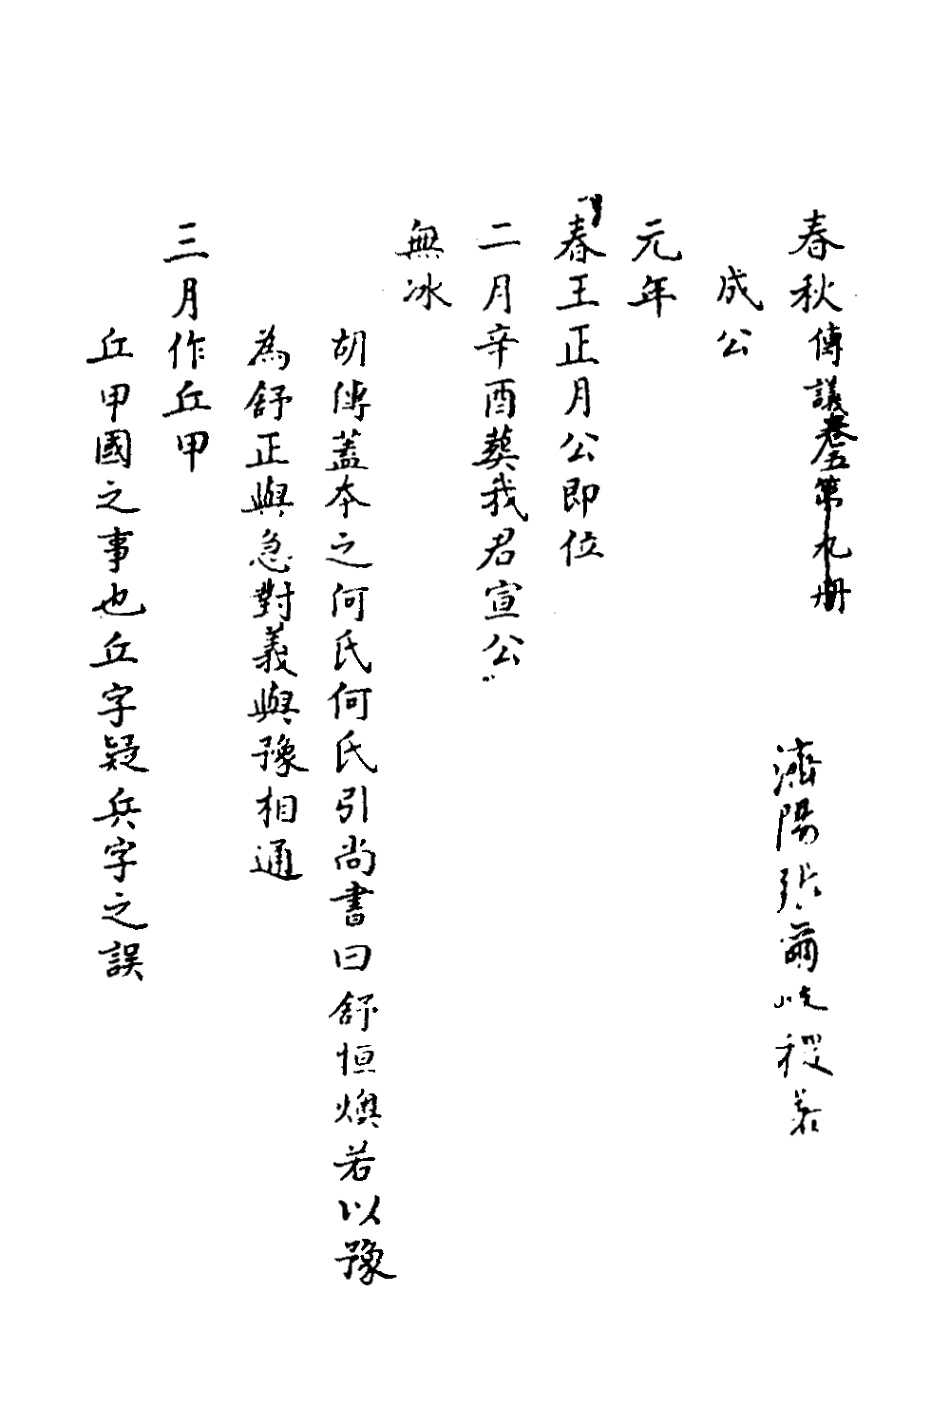 春秋傳議卷五第九册
濟陽張爾岐稷若
成公
元年
春王正月公即位
二月辛酉葬我君宣公
無冰
胡傳蓋本之何氏何氏引尚書曰舒恒燠若以豫
為舒正與急對義與豫相通
三月作丘甲
丘甲國之事也丘字疑兵字之誤